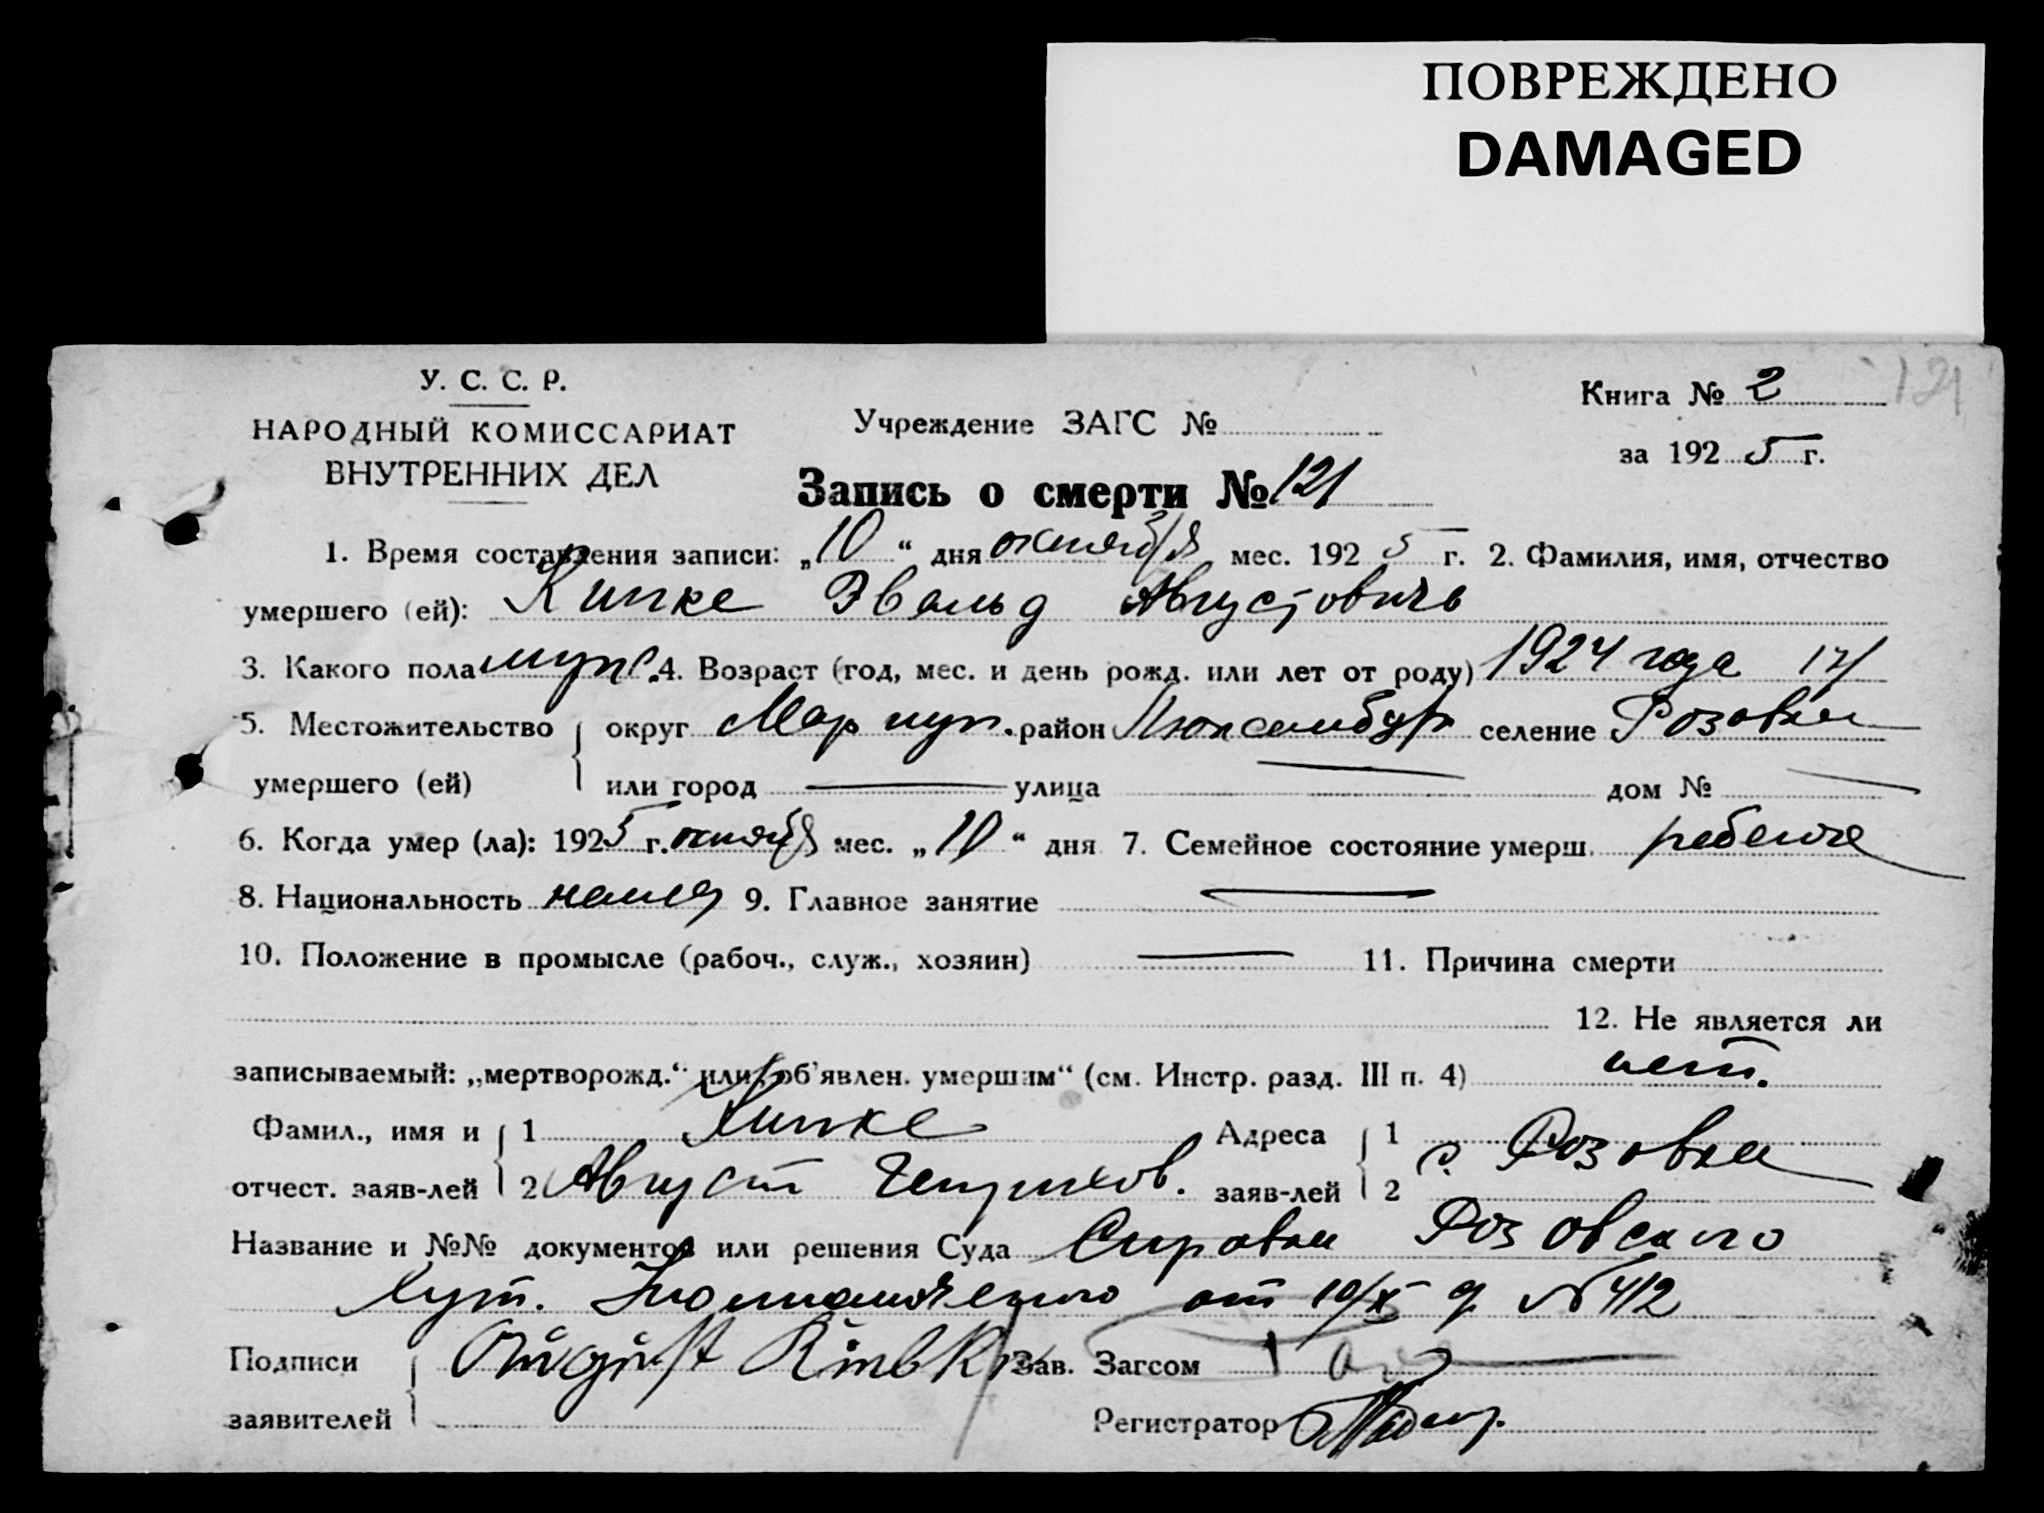 ПОВРЕЖДЕНО
DAMAGED
У. С. С. Р.
НАРОДНЫЙ КОМИССАРИАТ
ВНУТРЕННИХ ДЕЛ
Учреждение ЗАГС №
Книга № 2
121
за 1925 г.
Запись о смерти № 121
1. Время составления записи: „10“ дня октября мес. 1925 г. 2. Фамилия, имя, отчество
умершего (ей): Кипке Эвальд Августовичь
3. Какого пола муж. 4. Возраст (год, мес. и день рожд. или лет от роду) 1924 года
5. Местожительство округ Мариуп. район Люксембург селение Розовка
умершего (ей) или город — улица — дом № —
6. Когда умер (ла): 1925 г. октября мес. „10“ дня 7. Семейное состояние умерш. ребенок
8. Национальность немец 9. Главное занятие —
10. Положение в промысле (рабоч., служ., хозяин) — 11. Причина смерти
12. Не является ли
записываемый: „мертворожд.“ или „об'явлен. умершим“ (см. Инстр. разд. III п. 4) нет.
Фамил., имя и 1 Кипке Адреса 1
отчест. заяв-лей 2 Август заяв-лей 2 с. Розовка
Название и №№ документов или решения Суда Справка Розовского
от 10/X № 412
Подписи Зав. Загсом
заявителей Регистратор